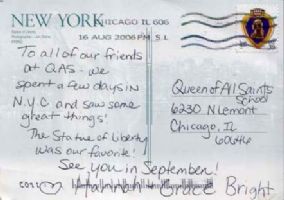 NEW YORK
CHICAGO IL 606
16 AUG 2006 PM 5 L
To all of our friends
at QAS - we
spent a few days in
N.Y.C and saw some
great things!
The Statue of Liberty
was our favorite!
See you in September!
Hannah + Grace Bright
Queen of All Saints
School
6230 N Lemont
Chicago, IL
60646